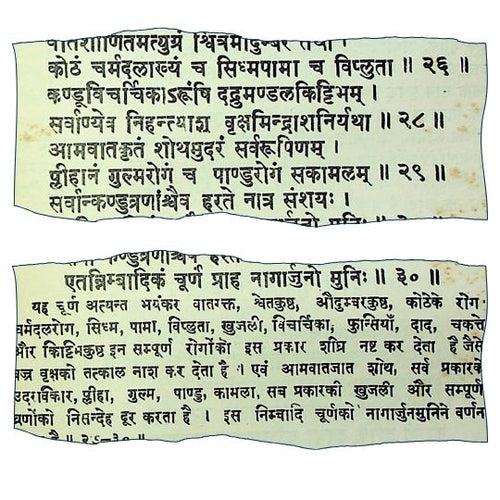 कोठं चर्मदलाख्यं च सिध्मपामा च विप्लुता ॥ २६ ॥
कण्डूविचर्चिकाऽरूंषि दद्रुमण्डलकिट्टिभम् ।
सर्वाण्येव निहन्त्याशु वृक्षमिन्द्राशनिर्यथा ॥ २८ ॥
आमवातकृतं शोथमुदरं सर्वरूपिणम् ।
प्लीहानं गुल्मरोगं च पाण्डुरोगं सकामलम् ॥ २९ ॥
सर्वान्कण्डुव्रणांश्चैव हरते नात्र संशयः ।
एतन्निम्बादिकं चूर्णं प्राह नागार्जुनो मुनिः ॥ ३० ॥
यह चूर्ण अत्यन्त भयंकर वातरक्त, श्वेतकुष्ठ, औदुम्बरकुष्ठ, कोठेके रोग
चर्मदलरोग, सिध्म, पामा, विप्लुता, खुजली, विचर्चिका, फुन्सियाँ, दाद, चकत्ते
और किट्टिभकुष्ठ इन सम्पूर्ण रोगोंको इस प्रकार शीघ्र नष्ट कर देता है जैसे
वज्र वृक्षको तत्काल नाश कर देता है । एवं आमवातजात शोथ, सर्व प्रकारके
उदरविकार, प्लीहा, गुल्म, पाण्डु, कामला, सब प्रकारकी खुजली और सम्पूर्ण
व्रणोंको निसन्देह दूर करता है । इस निम्बादि चूर्णको नागार्जुनमुनिने वर्णन